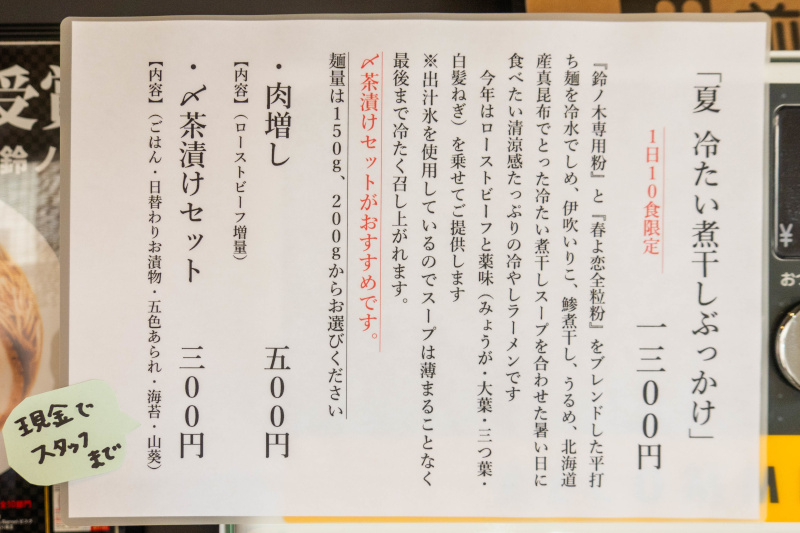 「夏 冷たい煮干しぶっかけ」
1日10食限定
一三〇〇円
『鈴ノ木専用粉』と『春よ恋全粒粉』をブレンドした平打
ち麺を冷水でしめ、伊吹いりこ、鯵煮干し、うるめ、北海道
産真昆布でとった冷たい煮干しスープを合わせた暑い日に
食べたい清涼感たっぷりの冷やしラーメンです
今年はローストビーフと薬味（みょうが・大葉・三つ葉・
白髪ねぎ）を乗せてご提供します
※出汁氷を使用しているのでスープは薄まることなく
最後まで冷たく召し上がれます。
〆茶漬けセットがおすすめです。
麺量は150g、200gからお選びください
・肉増し 五〇〇円
【内容】（ローストビーフ増量）
・〆茶漬けセット 三〇〇円
【内容】（ごはん・日替わりお漬物・五色あられ・海苔・山葵）
現金で
スタッフ
まで
受賞
鈴ノ
¥
おつ